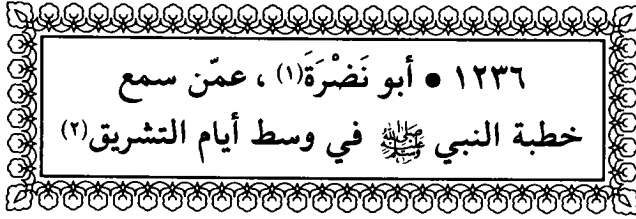 ١٢٣٦ • أبو نَضْرَةَ(١) ، عمّن سمع
خطبة النبي ﷺ في وسط أيام التشريق(٢)